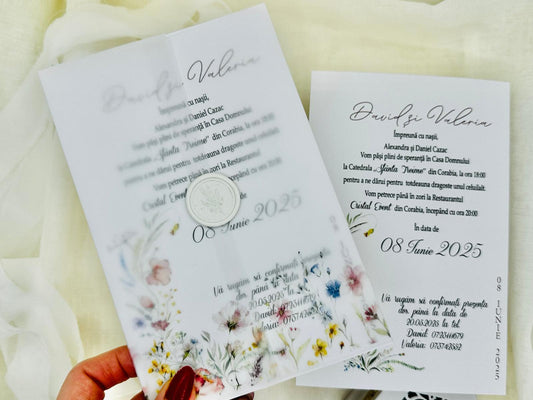 David și Valeria
Împreună cu nașii,
Alexandra și Daniel Cazac
Vom păși plini de speranță în Casa Domnului
la Catedrala „Sfânta Treime" din Corabia, la ora 18:00
pentru a ne dărui pentru totdeauna dragoste unul celuilalt.
Vom petrece până în zori la Restaurantul
08 Iunie 2025
Vă rugăm să confirmați
dvs. până la data de
20.05.2025 la tel.
David:
Valeria:
David și Valeria
Împreună cu nașii,
Alexandra și Daniel Cazac
Vom păși plini de speranță în Casa Domnului
la Catedrala „Sfânta Treime" din Corabia, la ora 18:00
pentru a ne dărui pentru totdeauna dragoste unul celuilalt.
Vom petrece până în zori la Restaurantul
Cristal Event din Corabia, începând cu ora 20:00
În data de
08 Iunie 2025
Vă rugăm să confirmați prezența
dvs. până la data de
20.05.2025 la tel.
David:
Valeria:
08 IUNIE 2025